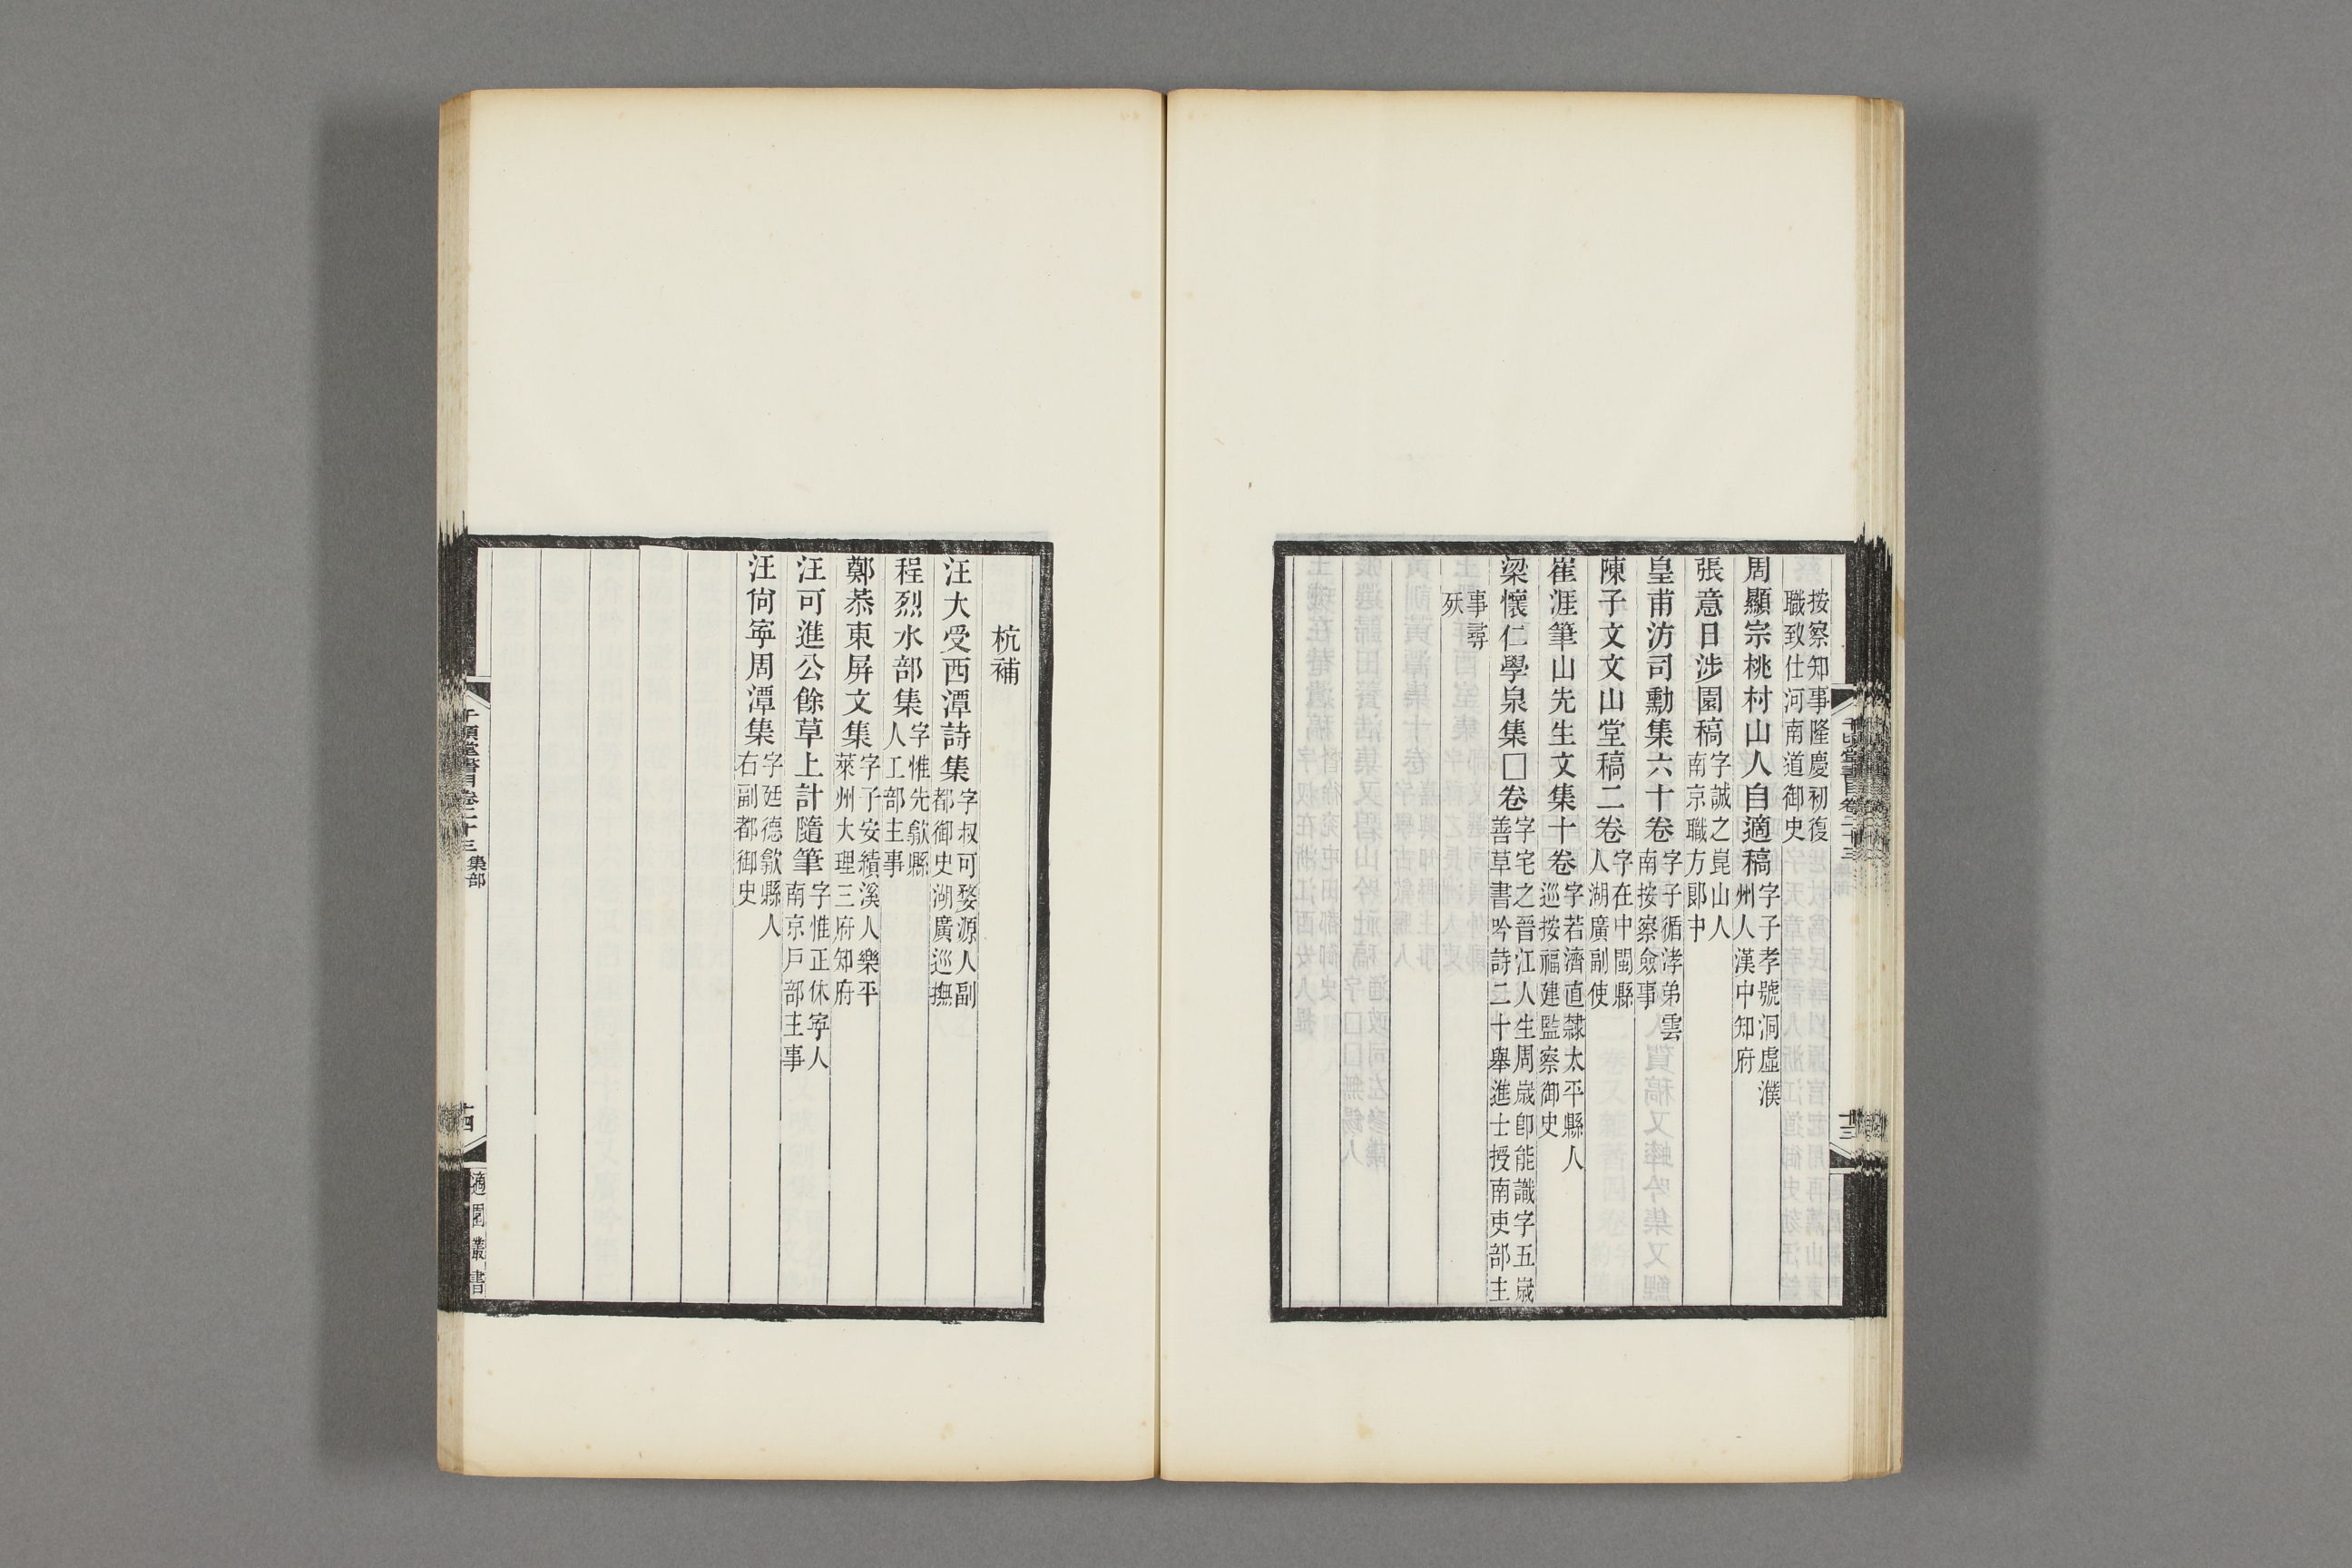 按察知事隆慶初復
職致仕河南道御史
周顯宗桃村山人自適稿
字子孝號洞虛濮
州人漢中知府
張意日涉園稿
字誠之崑山人
南京職方郎中
皇甫汸司勳集六十卷
字子循涍弟雲
南按察僉事
陳子文文山堂稿二卷
字在中閩縣
人湖廣副使
崔涯筆山先生文集十卷
字若濟直隸太平縣人
巡按福建監察御史
梁懷仁學泉集□卷
字宅之晉江人生周歲卽能識字五歲
善草書吟詩二十舉進士授南吏部主
事尋
殀
千頃堂書目卷二十三
十三
杭補
汪大受西潭詩集
字叔可婺源人副
都御史湖廣巡撫
程烈水部集
字惟先歙縣
人工部主事
鄭恭東屏文集
字子安績溪人樂平
萊州大理三府知府
汪可進公餘草上計隨筆
字惟正休寧人
南京戶部主事
汪尙寧周潭集
字廷德歙縣人
右副都御史
千頃堂書目卷二十三 集部
十四
適園叢書